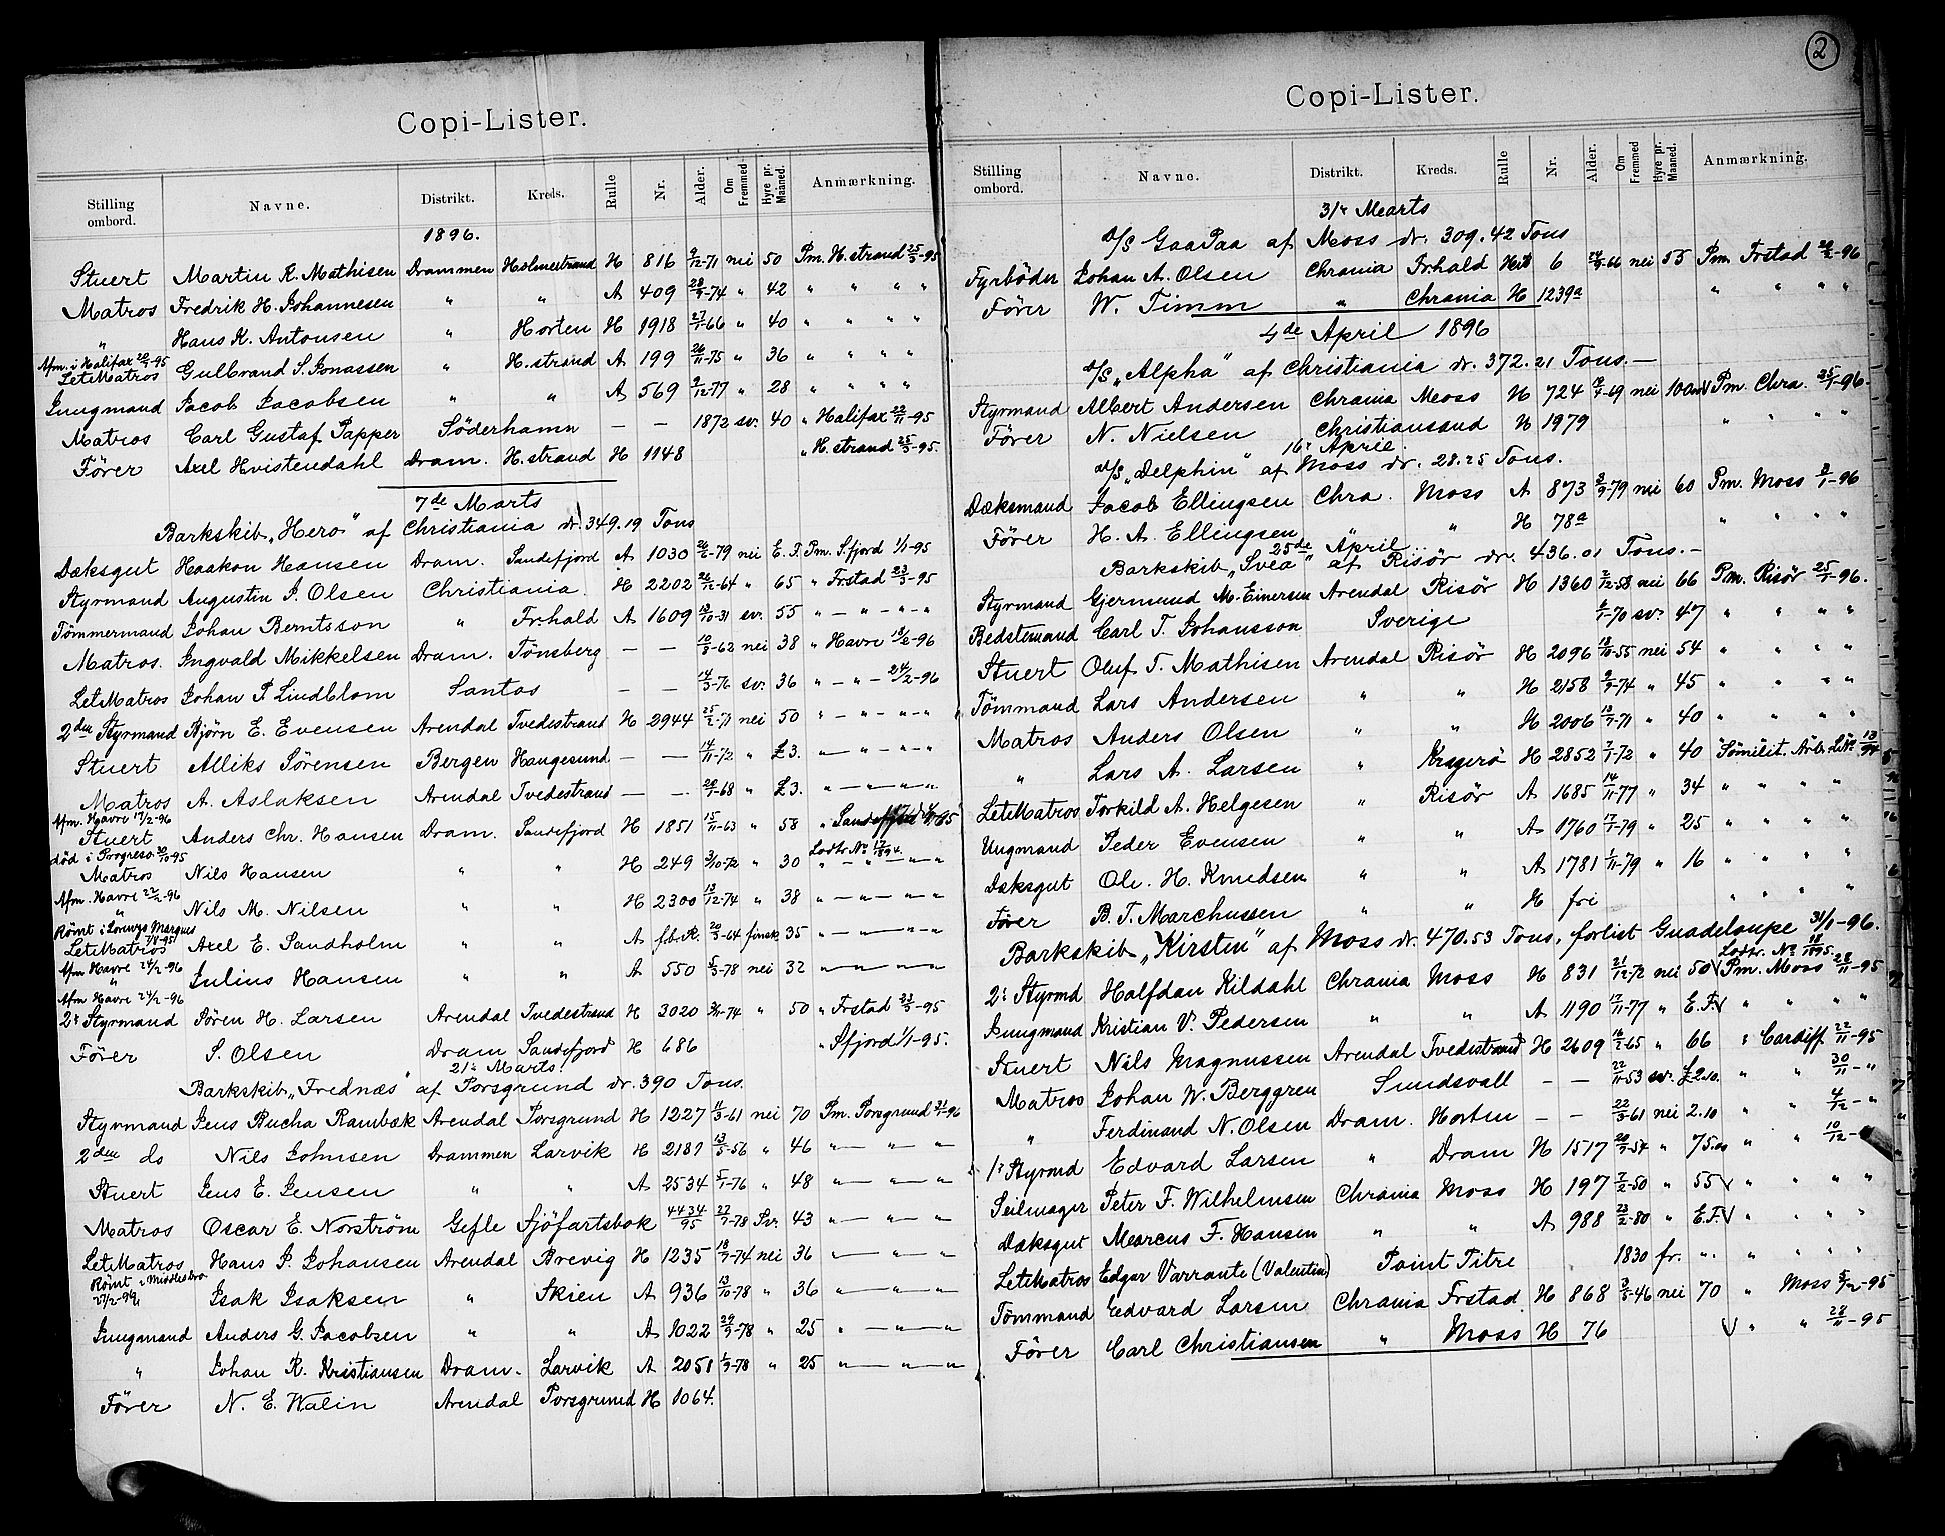 Copi-Lister.
Stilling ombord. Navne. Distrikt. Kreds. Rulle Nr. Alder. Om Fremmed Hyre pr. Maaned. Anmærkning.
1896.
Stuert Martin K. Mathisen Drammen Holmestrand H 816 2/12-71 nei 50 Pm. H.strand 25/5-95
Matros Fredrik H. Johannesen " " A 409 28/9-74 " 42 " " " "
" Hans K. Antonsen " Horten H 1918 27/1-66 " 40 " " " "
Afm. i Halifax 20/11-95
LetMatros Gulbrand S. Jonassen " H.strand A 199 26/11-75 " 36 " " " "
Jungmand Jacob Jacobsen " " A 569 2/12-77 " 28 " " " "
Matros Carl Gustaf Papper Söderhamn — — 1872 sv. 40 " Halifax 22/11-95
Förer Axel Hvistendahl Dram. H.strand H 1148 " H.strand 25/5-95.
7de Marts
Barkskib "Hero" af Christiania dr. 349.19 Tons
Dæksgut Haakon Hansen Dram. Sandefjord A 1030 26/6-79 nei E.F. Pm. S.fjord 1/1-95
Styrmand Augustin J. Olsen Christiania H 2202 26/2-64 " 65 " Frstad 23/3-95
Tömmermand Johan Berntsson " Fr.hald A 1609 18/10-31 sv. 55 " — " — " — "
Matros. Ingvald Mikkelsen Dram. Tönsberg — — 10/3-62 nei 38 " Havre 18/2-96
LetMatros Johan P Lindblom Santos — — 14/3-76 sv. 36 " — " — 24/2-96
2den Styrmand Björn E. Evensen Arendal Tvedestrand H 2944 25/2-73 nei 50 " — " — " — "
Stuert Alliks Sörensen Bergen Haugesund — — 14/11-72 " £3. " — " — " — "
Matros A. Aslaksen Arendal Tvedestrand — — 20/1-68 " £3. " — " — " — "
Afm. Havre 17/2-96
Stuert Anders Chr. Hansen Dram. Sandefjord H 1851 15/11-63 " 58 " Sandefjord 1/1-95
död i Progreso 30/10-95 Lodtr. No 17/1894.
Matros Nils Hansen " " H 249 3/10-72 " 30 " — " — " — "
Afm. Havre 22/2-96
" Nils M. Nilsen " " H 2300 13/12-74 " 38 " — " — " — "
Römt i Lourenço Marques 7/8-95
LetMatros Axel E. Sandholm " " A f.b.R. 20/3-64 finsk 35 " — " — "
Afm Havre 24/2-96
" Julius Hansen " " A 550 5/3-78 nei 32 " — " — "
Afm Havre 21/2-96
2' Styrmand Sören H. Larsen Arendal Tvedestrand H 3020 3/11-74 " 50 " Frstad 23/3-95
Förer S. Olsen Dram Sandefjord H 686 " Sfjord 1/1-95.
21' Marts.
Barkskib "Frednæs" af Porsgrund dr. 390 Tons.
Styrmand Jens Bucha Rambæk Arendal Porsgrund H 1227 11/3-61 nei 70 Pm. Porsgrund 21/1-96
2den do Nils Johnsen Drammen Larvik H 2187 13/5-56 " 46 " — " — "
Stuert Jens E. Jensen " " A 2534 5/1-76 " 48 " — " — "
Matros Oscar E. Norström Gefle Sjöfartsbok 4434/95 27/7-78 Sv. 43 " — " — "
LetMatros Hans J. Johansen Arendal Brevig H 1235 18/7-74 nei 36 " — " — "
Römt i Middlesbro 27/2-96
" Isak Isaksen " Skien A 936 13/10-78 " 36 " — " — "
Jungmand Anders G. Jacobsen " " A 1022 29/9-78 " 25 " — " — "
" Johan R. Kristiansen Dram. Larvik A 2051 1/9-78 " 25 " — " — "
Förer N. E. Walin Arendal Porsgrund H 1064.
2
Copi-Lister.
Stilling ombord. Navne. Distrikt. Kreds. Rulle Nr. Alder. Om Fremmed Hyre pr. Maaned. Anmærkning.
31' Marts
D/S GaaPaa af Moss dr. 309.42 Tons
Fyrböder Johan A. Olsen Chrania Fr.hald 6 nei 55 Pm. Frstad 29/2-96
Förer W. Timm " Chrania H 1239a " " " "
4de April 1896
D/S "Alpha" af Christiania dr. 372.21 Tons. —
Styrmand Albert Andersen Chrania Moss H 724 nei 100 Pm. Chra. 25/1-96.
Förer N. Nielsen Christiansand H 1979 " " " "
16' April.
D/S "Delphin" af Moss dr. 28.25 Tons.
Dæksmand Jacob Ellingsen Chra. Moss A 873 2/9-79 nei 60 Pm. Moss 8/1-96
Förer H. A. Ellingsen " " H 78a " " " "
25de April
Barkskib "Svea" af Risör dr. 436.01 Tons. —
Styrmand Gjermund M. Einersen Arendal Risör H 1360 2/12-58 nei 66 Pm. Risör 25/1-96.
Bedstemand Carl T. Johansson Sverige 6/1-70 sv. 47 " " " "
Stuert Oluf T. Mathisen Arendal Risör H 2096 18/10-55 nei 54 " " " "
Tömmand Lars Andersen " " H 2158 9/9-74 " 45 " " " "
Matros Anders Olsen " " H 2006 13/7-71 " 40 " " " "
" Lars A. Larsen " Kragerö H 2852 7/1-72 " 40 " Sömilit. Arb.
LetMatros Torkild A. Helgesen " Risör A 1685 14/11-77 " 34 " " " "
Ungmand Peder Evensen " " A 1760 17/1-79 " 25 " " " "
Dæksgut Ole. H. Knudsen " " A 1781 1/11-79 " 16 " " " "
Förer B. T. Marchussen " " H fri " " " "
Barkskib "Kirsten" af Moss dr. 470.53 Tons, forlist Guadeloupe 31/1-96.
Lodtr. No 18/1895.
2' Styrmd Halfdan Kildahl Chrania Moss H 831 21/12-72 nei 50 Pm. Moss 28/11-95
Jungmand Kristian V. Pedersen " " A 1190 17/11-77 " E.F. " " " "
Stuert Nils Magnussen Arendal Tvedestrand H 2609 16/2-65 " 66 " Cardiff 22/11-95
Matros Johan W. Berggren Sundsvall — — 22/11-53 sv. £2.10. " " 30/11-"
" Ferdinand N. Olsen Dram. Horten — — 22/3-61 nei 2.10 " " 4/12-"
1' Styrmd Edvard Larsen " Dram H 1517 20/9-54 " 75.00 " " 10/12-"
Seilmager Peter F. Wilhelmsen Chrania Moss H 197 7/2-50 " 55 " " " "
Dæksgut Marcus F. Hansen " " A 988 23/2-80 " E.F. " " " "
LetMatros Edgar Varrante (Valentin) Point Pitre 1830 fr. " " " " "
Tömmand Edvard Larsen Chrania Frstad. H 868 3/5-46 nei 70 " Moss 5/12-95
Förer Carl Christiansen " Moss H 76 " " 28/11-95